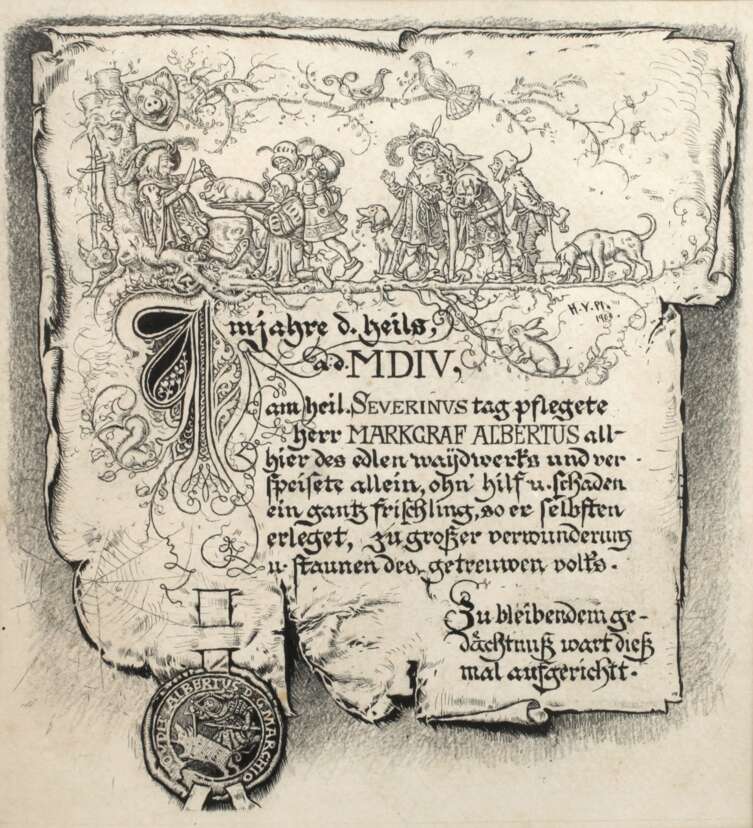 H.V.Pl.
Im jahre d. heils,
a.d. MDIV,
am heil. SEVERINVS tag pflegete
herr MARKGRAF ALBERTUS all-
hier des edlen waijdwerks und ver-
speisete allein, ohn' hilf u. schaden
ein gantz frischling, so er selbsten
erleget, zu großer verwunderung
u. staunen des getreuwen volks.
Zu bleibendem ge-
dächtnuß wart dieß
mal aufgerichtt.
ALBERTUS D.G. MARCHIO